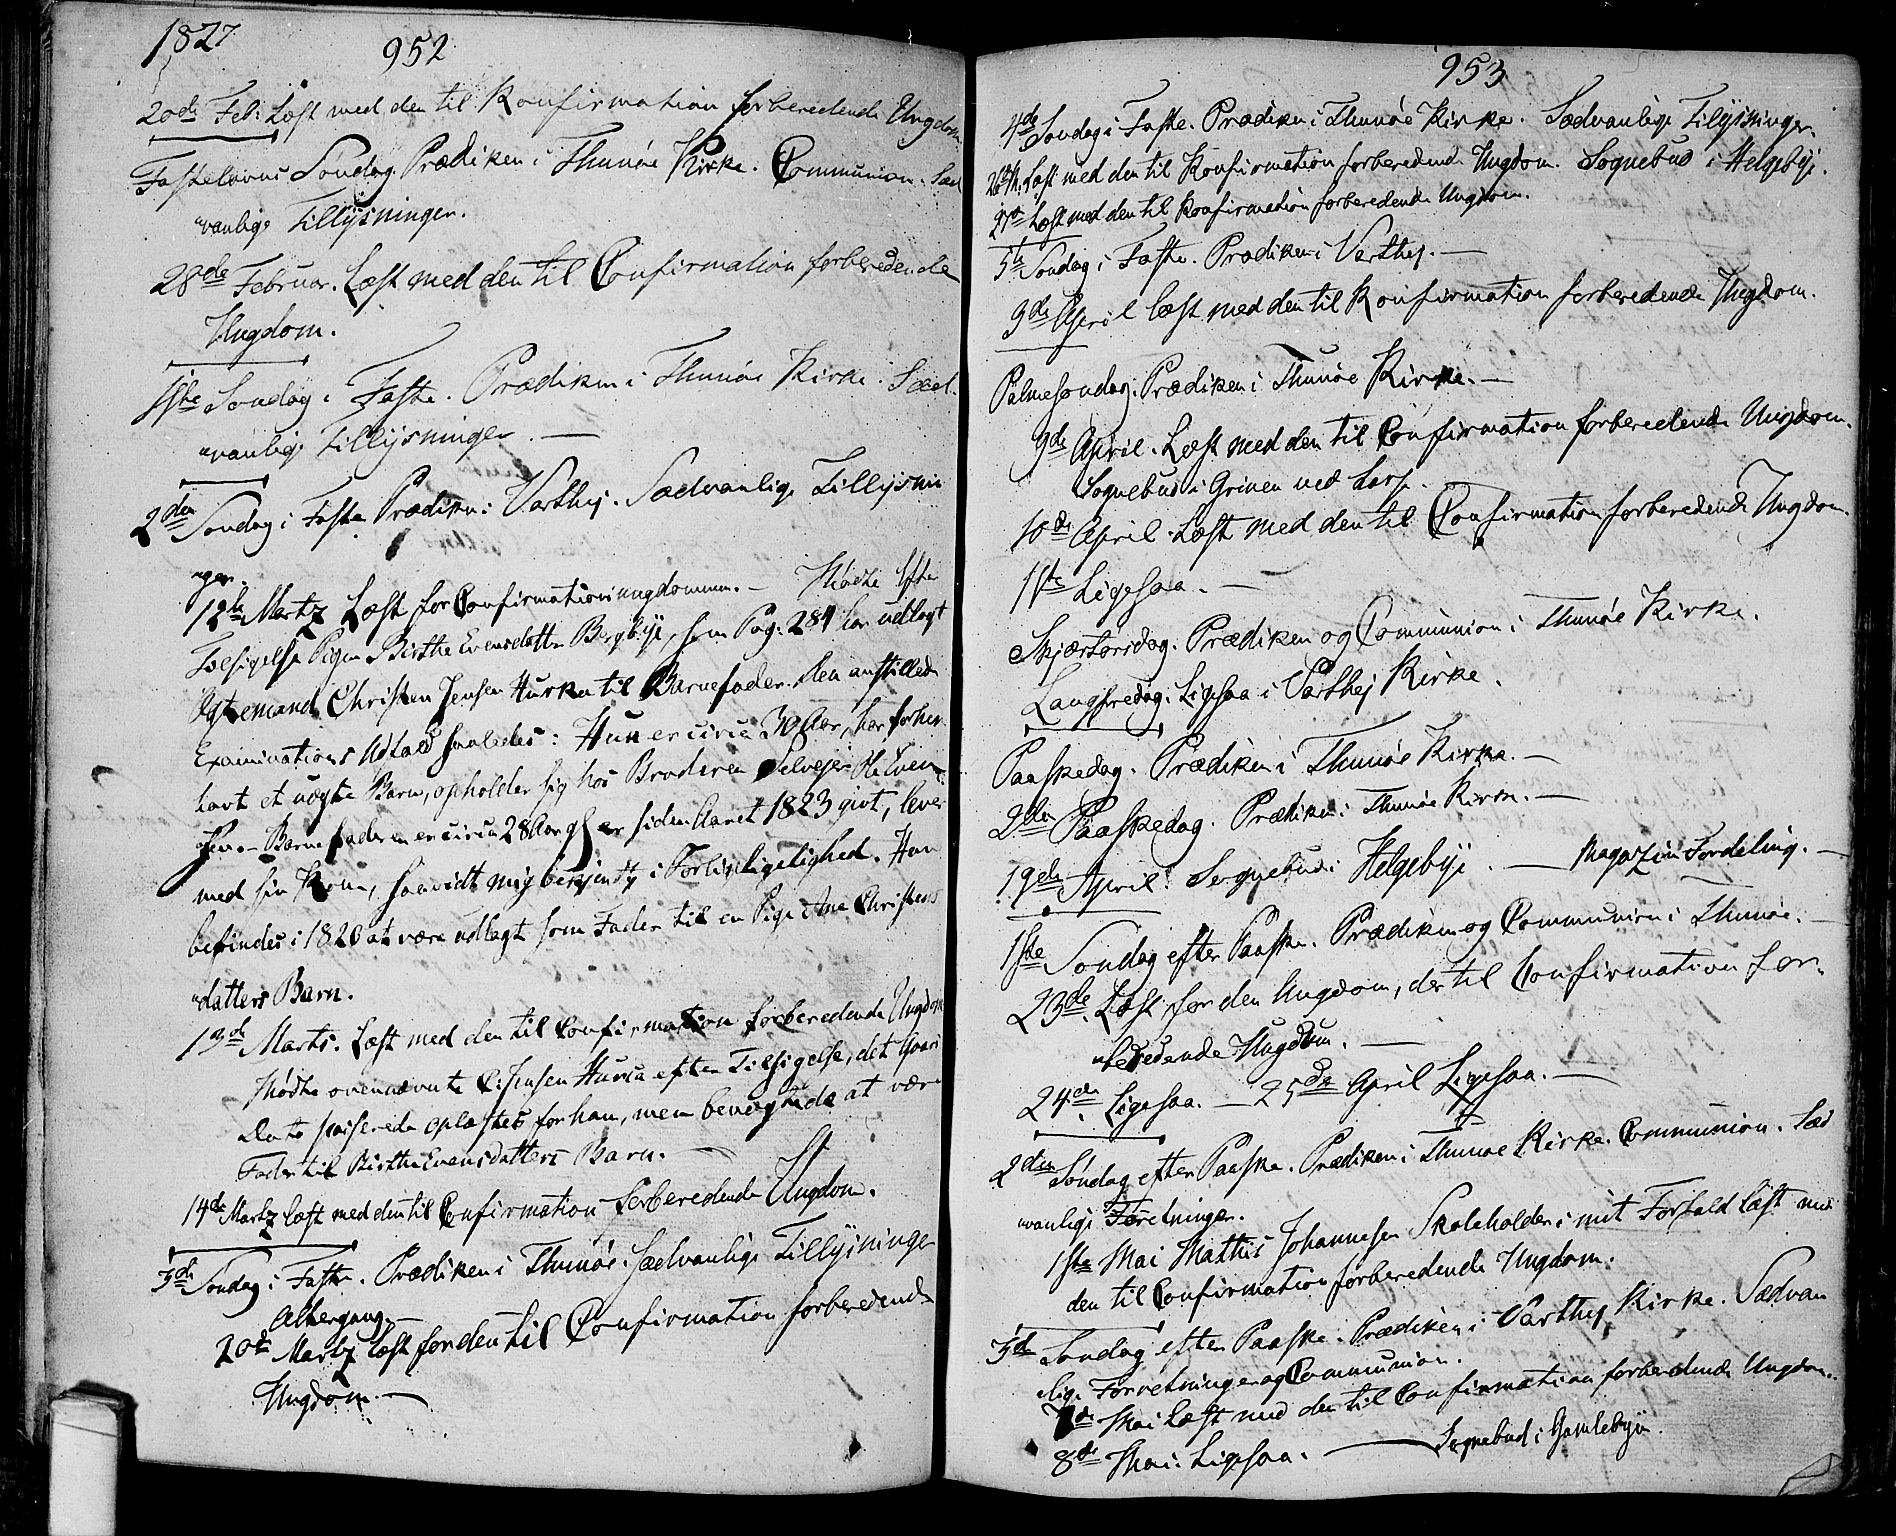 1827
952
20de Feb: Læst med den til Konfirmation forberedende Ungdom
Fastelavns Søndag Prædiken i Thunøe Kirke. Communion. Sæd
„vanlige Tillysninger.
28de Februar. Læst med den til Confirmation forberedende
Ungdom.
1ste Søndag i Faste. Prædiken i Thunøe Kirke. Sæd-
„vanlig Tillysninger. —
2den Søndag i Faste Prædiken i Varthej. Sædvanlige Tillysnin
„ger.
12te Martz Læst for Confirmationsungdommen. — Mødte efter
Tilsigelse Pigen Birthe Evensdatter Bergbye, som Pag: 284 har udlagt
Ægtemand Christen Jensen Huren til Barnefader. Den anstillede
Examinations Udfald saaledes: Hun er circa 30 Aar, har forhen
havt et uægte Barn, opholder sig hos Broderen Selvejer Ole Even-
sen. — Barnefaderen er circa 28 Aar gl er siden Aaret 1823 givt, lever
med sin Kone, saavidt mig bekjendt, i Forligelighed. Han
befindes i 1820 at være udlagt som Fader til en Pige Ane Christens
„datters Barn.
13de Marts. Læst med den til Confirmation forberedende Ungdom
Mødte ovennævnte C: Jensen Huren efter Tilsigelse, det Gaars
Dato passerede oplæstes for ham, men benægtede at være
Fader til Birthe Evensdatters Barn. —
14de Martz læst med den til Confirmation forberedende Ungdom.
3die Søndag i Faste. Prædiken i Thunøe. Sædvanlige Tillysninger
Altergang. —
20de Martz læst for den til Confirmation forberedende
Ungdom. —
953
4de Søndag i Faste. Prædiken i Thunøe Kirke. Sædvanlige Tillysninger.
26de M: Læst med den til Konfirmation forberedende Ungdom. Sognebud i Helgebye.
27de Læst med den til Konfirmation forberedende Ungdom.
5te Søndag i Faste. Prædiken i Varthej. —
3de April læst med den til Konfirmation forberedende Ungdom.
Palmesøndag. Prædiken i Thunøe Kirke. —
9de April. Læst med den til Confirmation forberedende Ungdom.
Sognebud i Grinen ved Lars.
10de April læst med den til Confirmation forberedende Ungdom.
11te Ligesaa. —
Skjærtorsdag. Prædiken og Communion i Thunøe Kirke.
Langfredag. Ligesaa i Varthej Kirke.
Paaskedag. Prædiken i Thunøe Kirke. —
2den Paaskedag. Prædiken i Thunøe Kirke. —
19de April. Sognebud i Helgebye. — Magazin Fordeling. —
1ste Søndag efter Paaske. Prædiken og Communion i Thunøe. —
23de. Læst for den Ungdom, der til Confirmation for-
„beredende Ungdom. —
24de Ligesaa. — 25de April Ligesaa. —
2den Søndag efter Paaske. Prædiken i Thunøe Kirke. Communion. Sæd
„vanlige Forretninger.
1ste Mai Mathis Johannesen Skoleholder i mit Forfald læst med
den til Confirmation forberedende Ungdom.
3de Søndag efter Paaske. Prædiken i Varthej Kirke. Sædvan
„lige Forretninger og Communion.
7de Mai Læst med den til Confirmation forberedende Ungdom.
8de Mai: Ligesaa. — Sognebud i Gamlebyen.